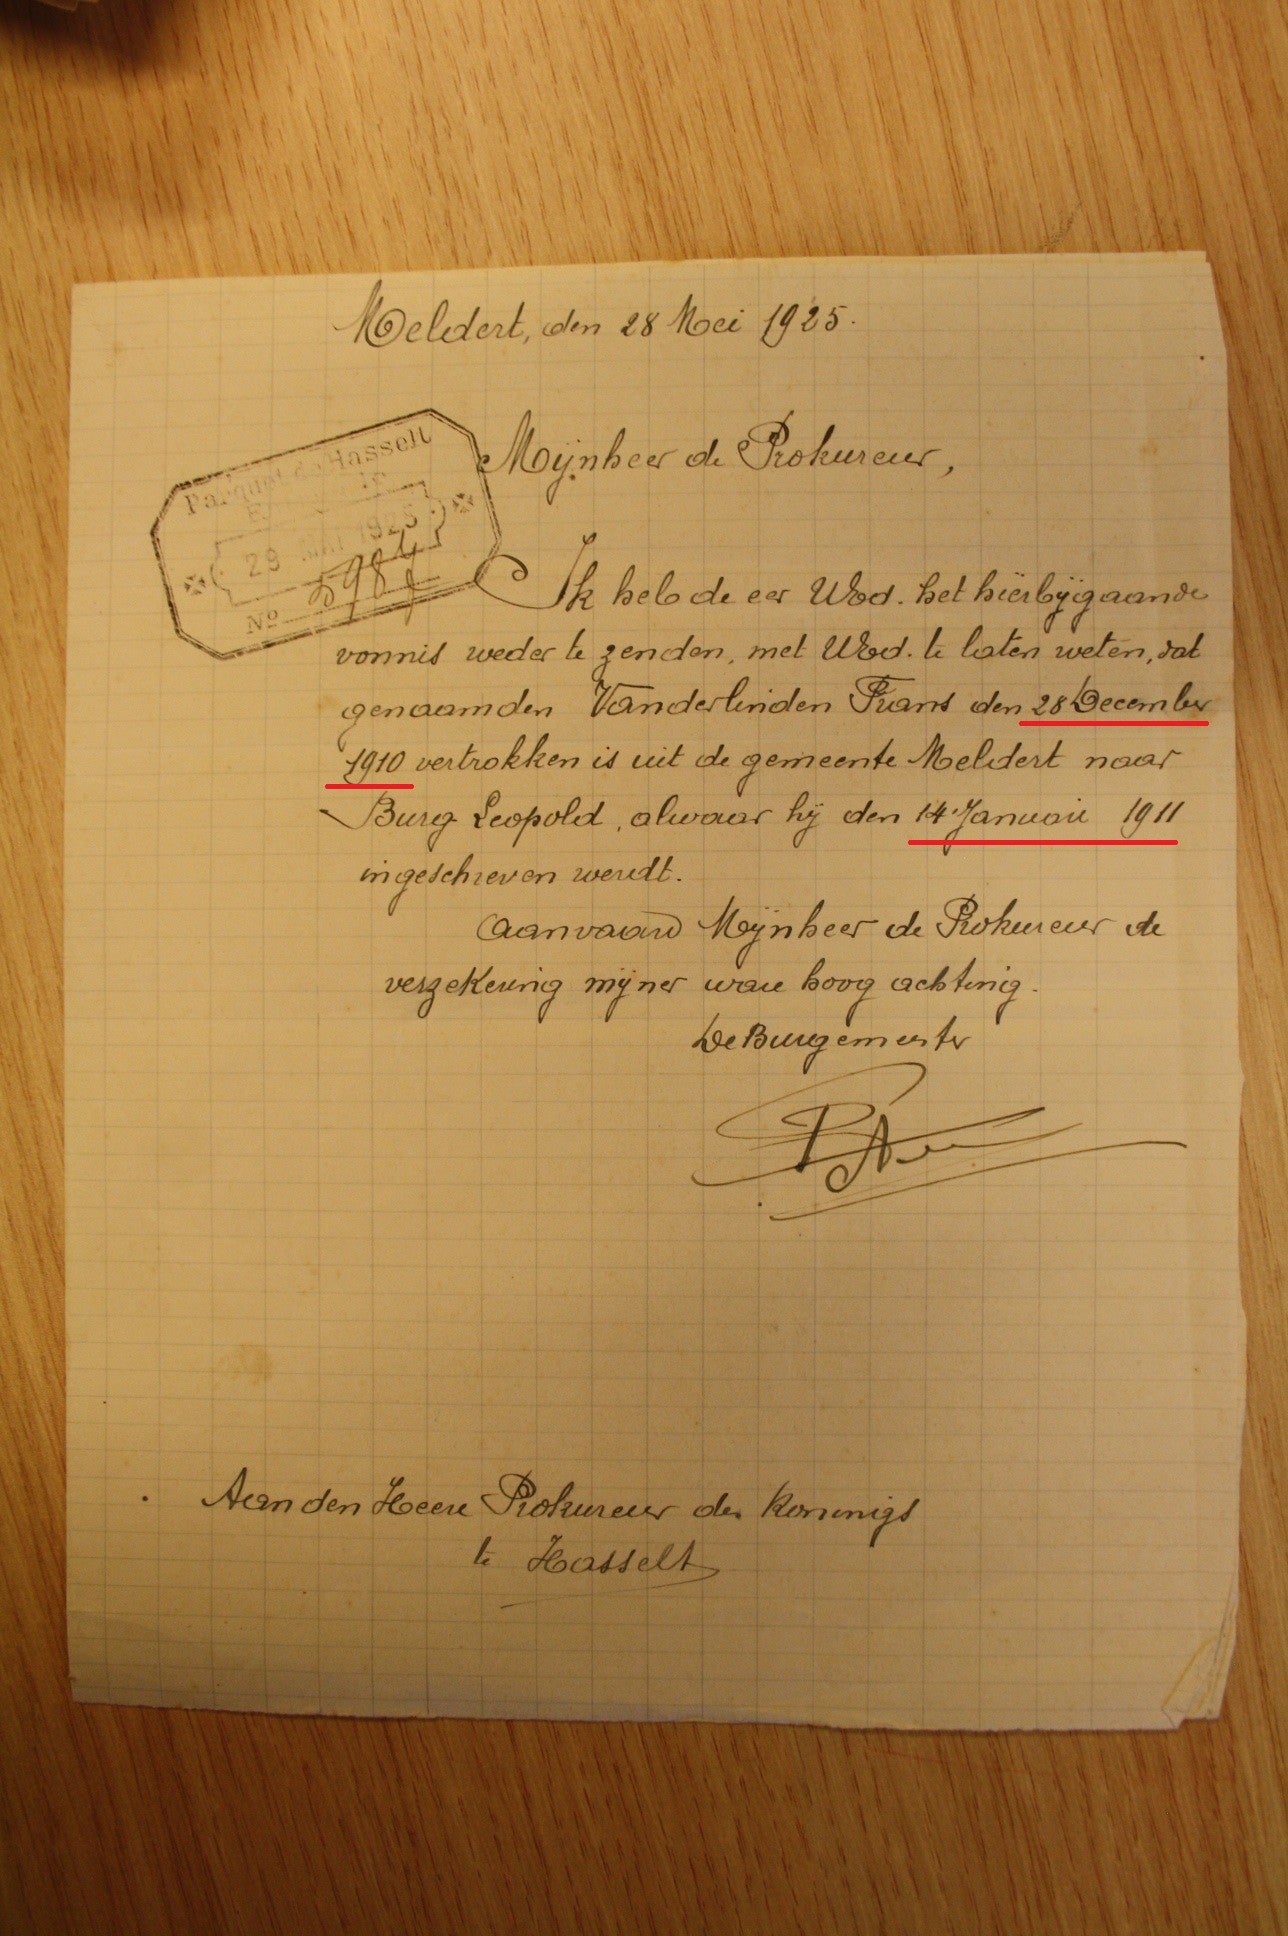 Meldert, den 28 Mei 1925.
Parquet de Hasselt
29 MAI 1925
No 5984
Mijnheer de Prokureur,
Ik heb de eer UEd. het hierbijgaande
vonnis weder te zenden, met UEd. te laten weten, dat
genaamden Vanderlinden Frans den 28 December
1910 vertrokken is uit de gemeente Meldert naar
Burg Leopold, alwaar hij den 14 Januari 1911
ingeschreven werdt.
Aanvaard Mijnheer de Prokureur de
verzekering mijner ware hoog achting.
De Burgemeester
Aan den Heere Prokureur des Konings
te Hasselt